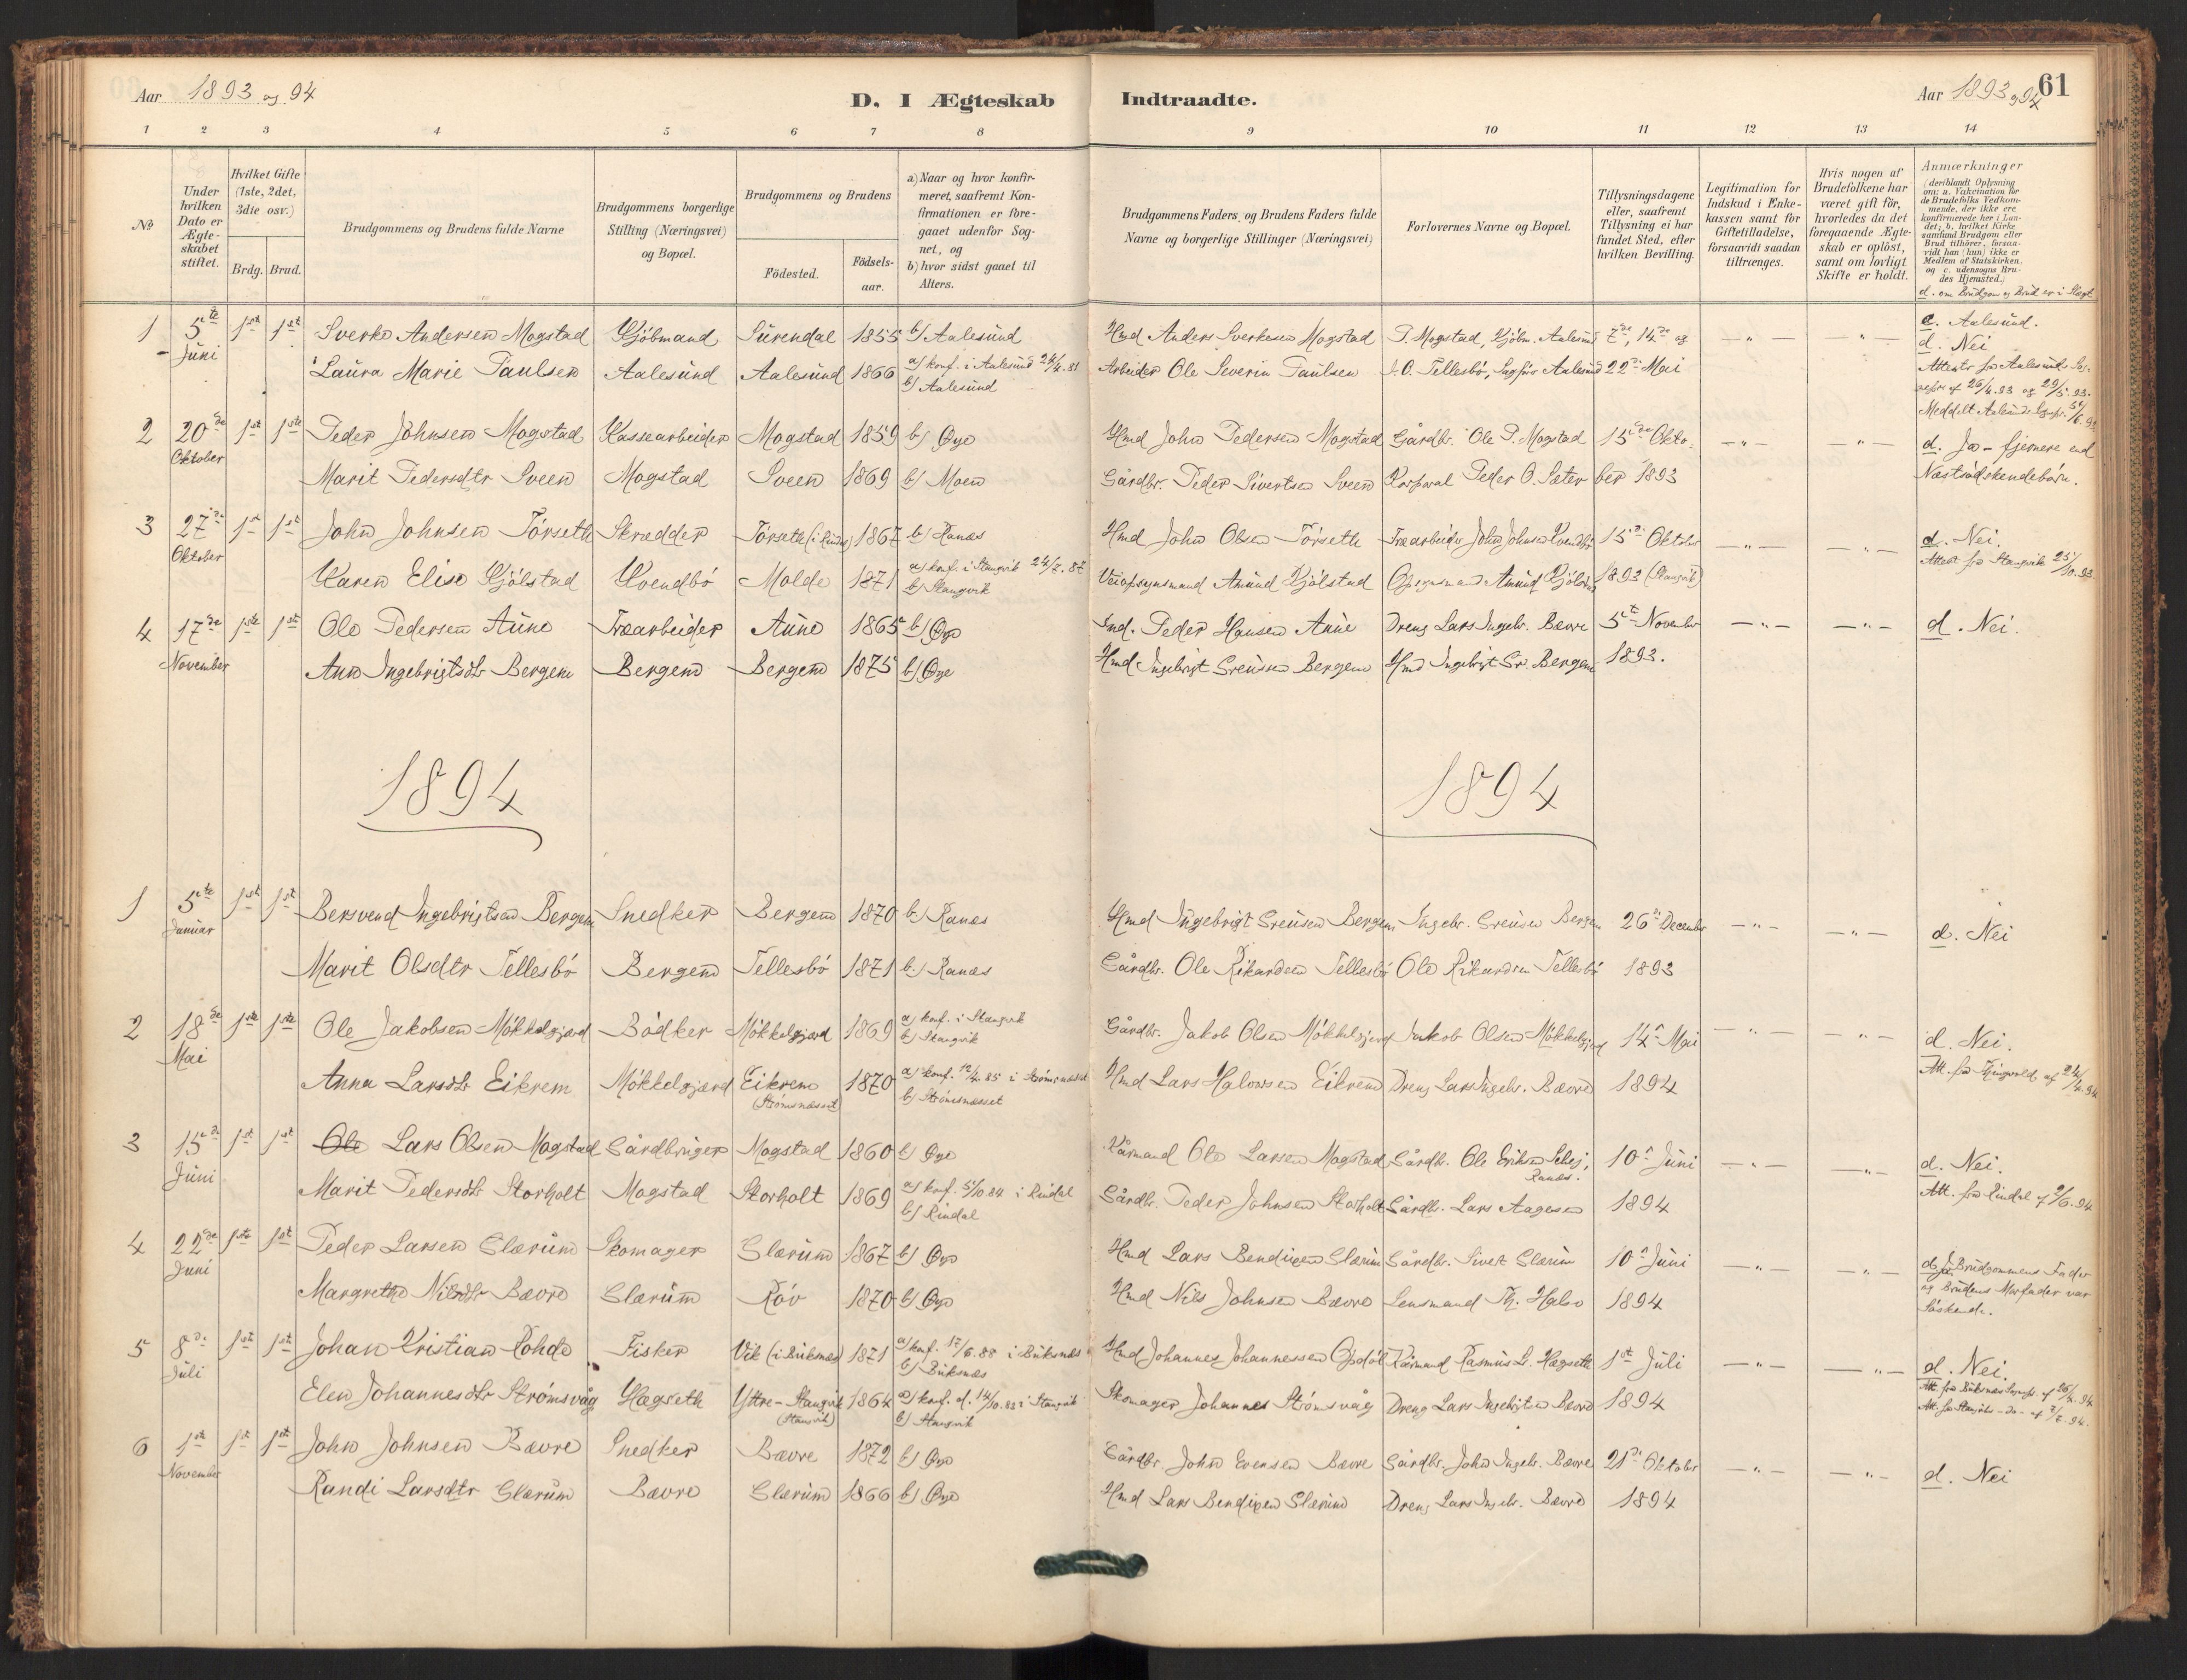 Aar 1893 og 94
D. I Ægteskab Indtraadte.
Aar 1893 og 94
61
1 2 3 4 5 6 7 8 9 10 11 12 13 14
No
Under hvilken Dato er Ægteskabet stiftet.
Hvilket Gifte (1ste, 2det, 3die osv.)
Brdg. Brud.
Brudgommens og Brudens fulde Navne
Brudgommens borgerlige Stilling (Næringsvei) og Bopæl.
Brudgommens og Brudens
Födested.
Födselsaar.
a) Naar og hvor konfirmeret, saafremt Konfirmationen er foregaaet udenfor Sognet, og
b) hvor sidst gaaet til Alters.
Brudgommens Faders og Brudens Faders fulde Navne og borgerlige Stillinger (Næringsvei)
Forlovernes Navne og Bopæl.
Tillysningsdagene eller, saafremt Tillysning ei har fundet Sted, efter hvilken Bevilling.
Legitimation for Indskud i Enkekassen samt for Giftetilladelse, forsaavidt saadan tiltrænges.
Hvis nogen af Brudefolkene har været gift för, hvorledes da det foregaaende Ægteskab er oplöst, samt om lovligt Skifte er holdt.
Anmærkninger
(deriblandt Oplysning om: a. Vakcination for de Brudefolks Vedkommende, der ikke ere konfirmerede her i Landet; b. hvilket Kirkesamfund Brudgom eller Brud tilhörer, forsaavidt han (hun) ikke er Medlem af Statskirken, og c. udensogns Brudes Hjemsted.)
d. om Brudgom og Brud er i Slægt
1 5te Juni 1ste 1ste Sverke Andersen Mogstad Kjöbmand Surendal 1855 b) Aalesund Hmd Anders Sverkesen Mogstad P. Mogstad, Kjöbm. Aalesund 7de, 14de og c. Aalesund.
d. Nei
Laura Marie Paulsen Aalesund Aalesund 1866 a) konf. i Aalesund 24/4. 81
b) Aalesund Arbeider Ole Severin Paulsen J. O. Tellesbö, Sagförer Aalesund 22de Mai Attester fra Aalesunds
af 26/4.93 og 29/5.93.
Meddelt Aalesunds
2 20de Oktober 1ste 1ste Peder Johnsen Mogstad Kassearbeider Mogstad 1859 b) Øye Hmd John Pedersen Mogstad Gårdbr. Ole P. Mogstad 15de Okto- d. Ja - fjernere end
Marit Pedersdtr Sveen Mogstad Sveen 1869 b) Moen Gårdbr. Peder Sivertsen Sveen Korporal Peder O. Sæter ber 1893 Næstsödskendebörn.
3 27de Oktober 1ste 1ste John Johnsen Törseth Skrædder Törseth (i Rindal) 1867 b) Ranæs Hmd John Olsen Törseth Træarbeider John Johnsen Kvendbö 15de Oktober d. Nei.
Karen Elise Kjölstad Kvendbö Molde 1871 a) konf. i Stangvik 24/7. 87
b) Stangvik Veiopsynsmand Amund Kjölstad Opsynsmand Amund Kjölstad 1893 (Stangvik) Attest fra Stangvik 25/10.93
4 17de November 1ste 1ste Ole Pedersen Aune Træarbeider Aune 1865 b) Øye Ind. Peder Hansen Aune Dreng Lars Ingebr. Bævre 5te November d. Nei.
Ann Ingebrigtsdtr Bergem Bergem Bergem 1875 b) Øye Hmd Ingebrigt Sveinsen Bergem Hmd Ingebrigt Sv. Bergem 1893.
1894 1894
1 5te Januar 1ste 1ste Bersvend Ingebrigtsen Bergem Snedker Bergem 1870 b.) Ranæs Hmd Ingebrigt Sveinsen Bergem Ingebr. Sveinsen Bergem 26de December d. Nei
Marit Olsdtr Tellesbö Bergem Tellesbö 1871 b.) Ranæs Gårdbr. Ole Rikardsen Tellesbö Ole Rikardsen Tellesbö 1893
2 18de Mai 1ste 1ste Ole Jakobsen Mökkelgjærd Bödker Mökkelgjærd 1869 a) konf. i Stangvik
b) Stangvik Gårdbr. Jakob Olsen Mökkelgjerd Jakob Olsen Mökkelgjerd 14de Mai d. Nei.
Anna Larsdtr Eikrem Mökkelgjærd Eikrem (Strömsnæsset) 1870 a) konf. 12/4. 85 i Strömsnæsset
b) Strömsnæsset Hmd Lars Halvorsen Eikrem Dreng Lars Ingebr. Bævre 1894 Att. fra Tingvold af 24/4.94
3 15de Juni 1ste 1ste Ole Lars Olsen Mogstad Gårdbruger Mogstad 1860 b) Øye Kårmand Ole Larsen Mogstad Gårdbr. Ole Eriksen Schej, Ranæs. 10de Juni d. Nei.
Marit Pedersdtr Storholt Mogstad Storholt 1869 a) konf. 5/10.84 i Rindal
b) Rindal Gårdbr. Peder Johnsen Storholt Gårdbr. Lars Aagesen 1894 Att. fra Rindal af 9/6.94
4 22de Juni 1ste 1ste Peder Larsen Glærum Skomager Glærum 1867 b) Øye Hmd Lars Bendixen Glærum Gårdbr. Sivert Glærum 10de Juni d. Ja Brudgommens Fader
og Brudens Morfader var
Söskende.
Margrethe Nilsdtr Bævre Glærum Röv 1870 b) Øye Hmd Nils Johnsen Bævre Lensmand Th. Halse 1894
5 8de Juli 1ste 1ste Johan Kristian Rohde Fisker Vik (i Buksnæs) 1871 a) konf. 17/6. 88 i Buksnæs
b) Buksnæs Hmd Johannes Johannessen Opdöl Kårmand Rasmus L. Hægseth 1ste Juli d. Nei.
Elen Johannesdtr Strömsvåg Hægseth Yttre-Stangvik (Stangvik) 1864 a) konf. d. 14/10.83 i Stangvik
b) Stangvik Skomager Johannes Strömsvåg Dreng Lars Ingebrigtsen Bævre 1894 Att. fra Buksnæs Sognepr. af 26/4.94
Att. fra Stangviks -do- af 7/7.94.
6 1ste November 1ste 1ste John Johnsen Bævre Snedker Bævre 1872 b) Øye Gårdbr. John Evensen Bævre Gårdbr. John Ingebr. Bævre 21de Oktober d. Nei
Randi Larsdtr Glærum Bævre Glærum 1866 b) Øye Hmd Lars Bendixen Glærum Dreng Lars Ingebr. Bævre 1894